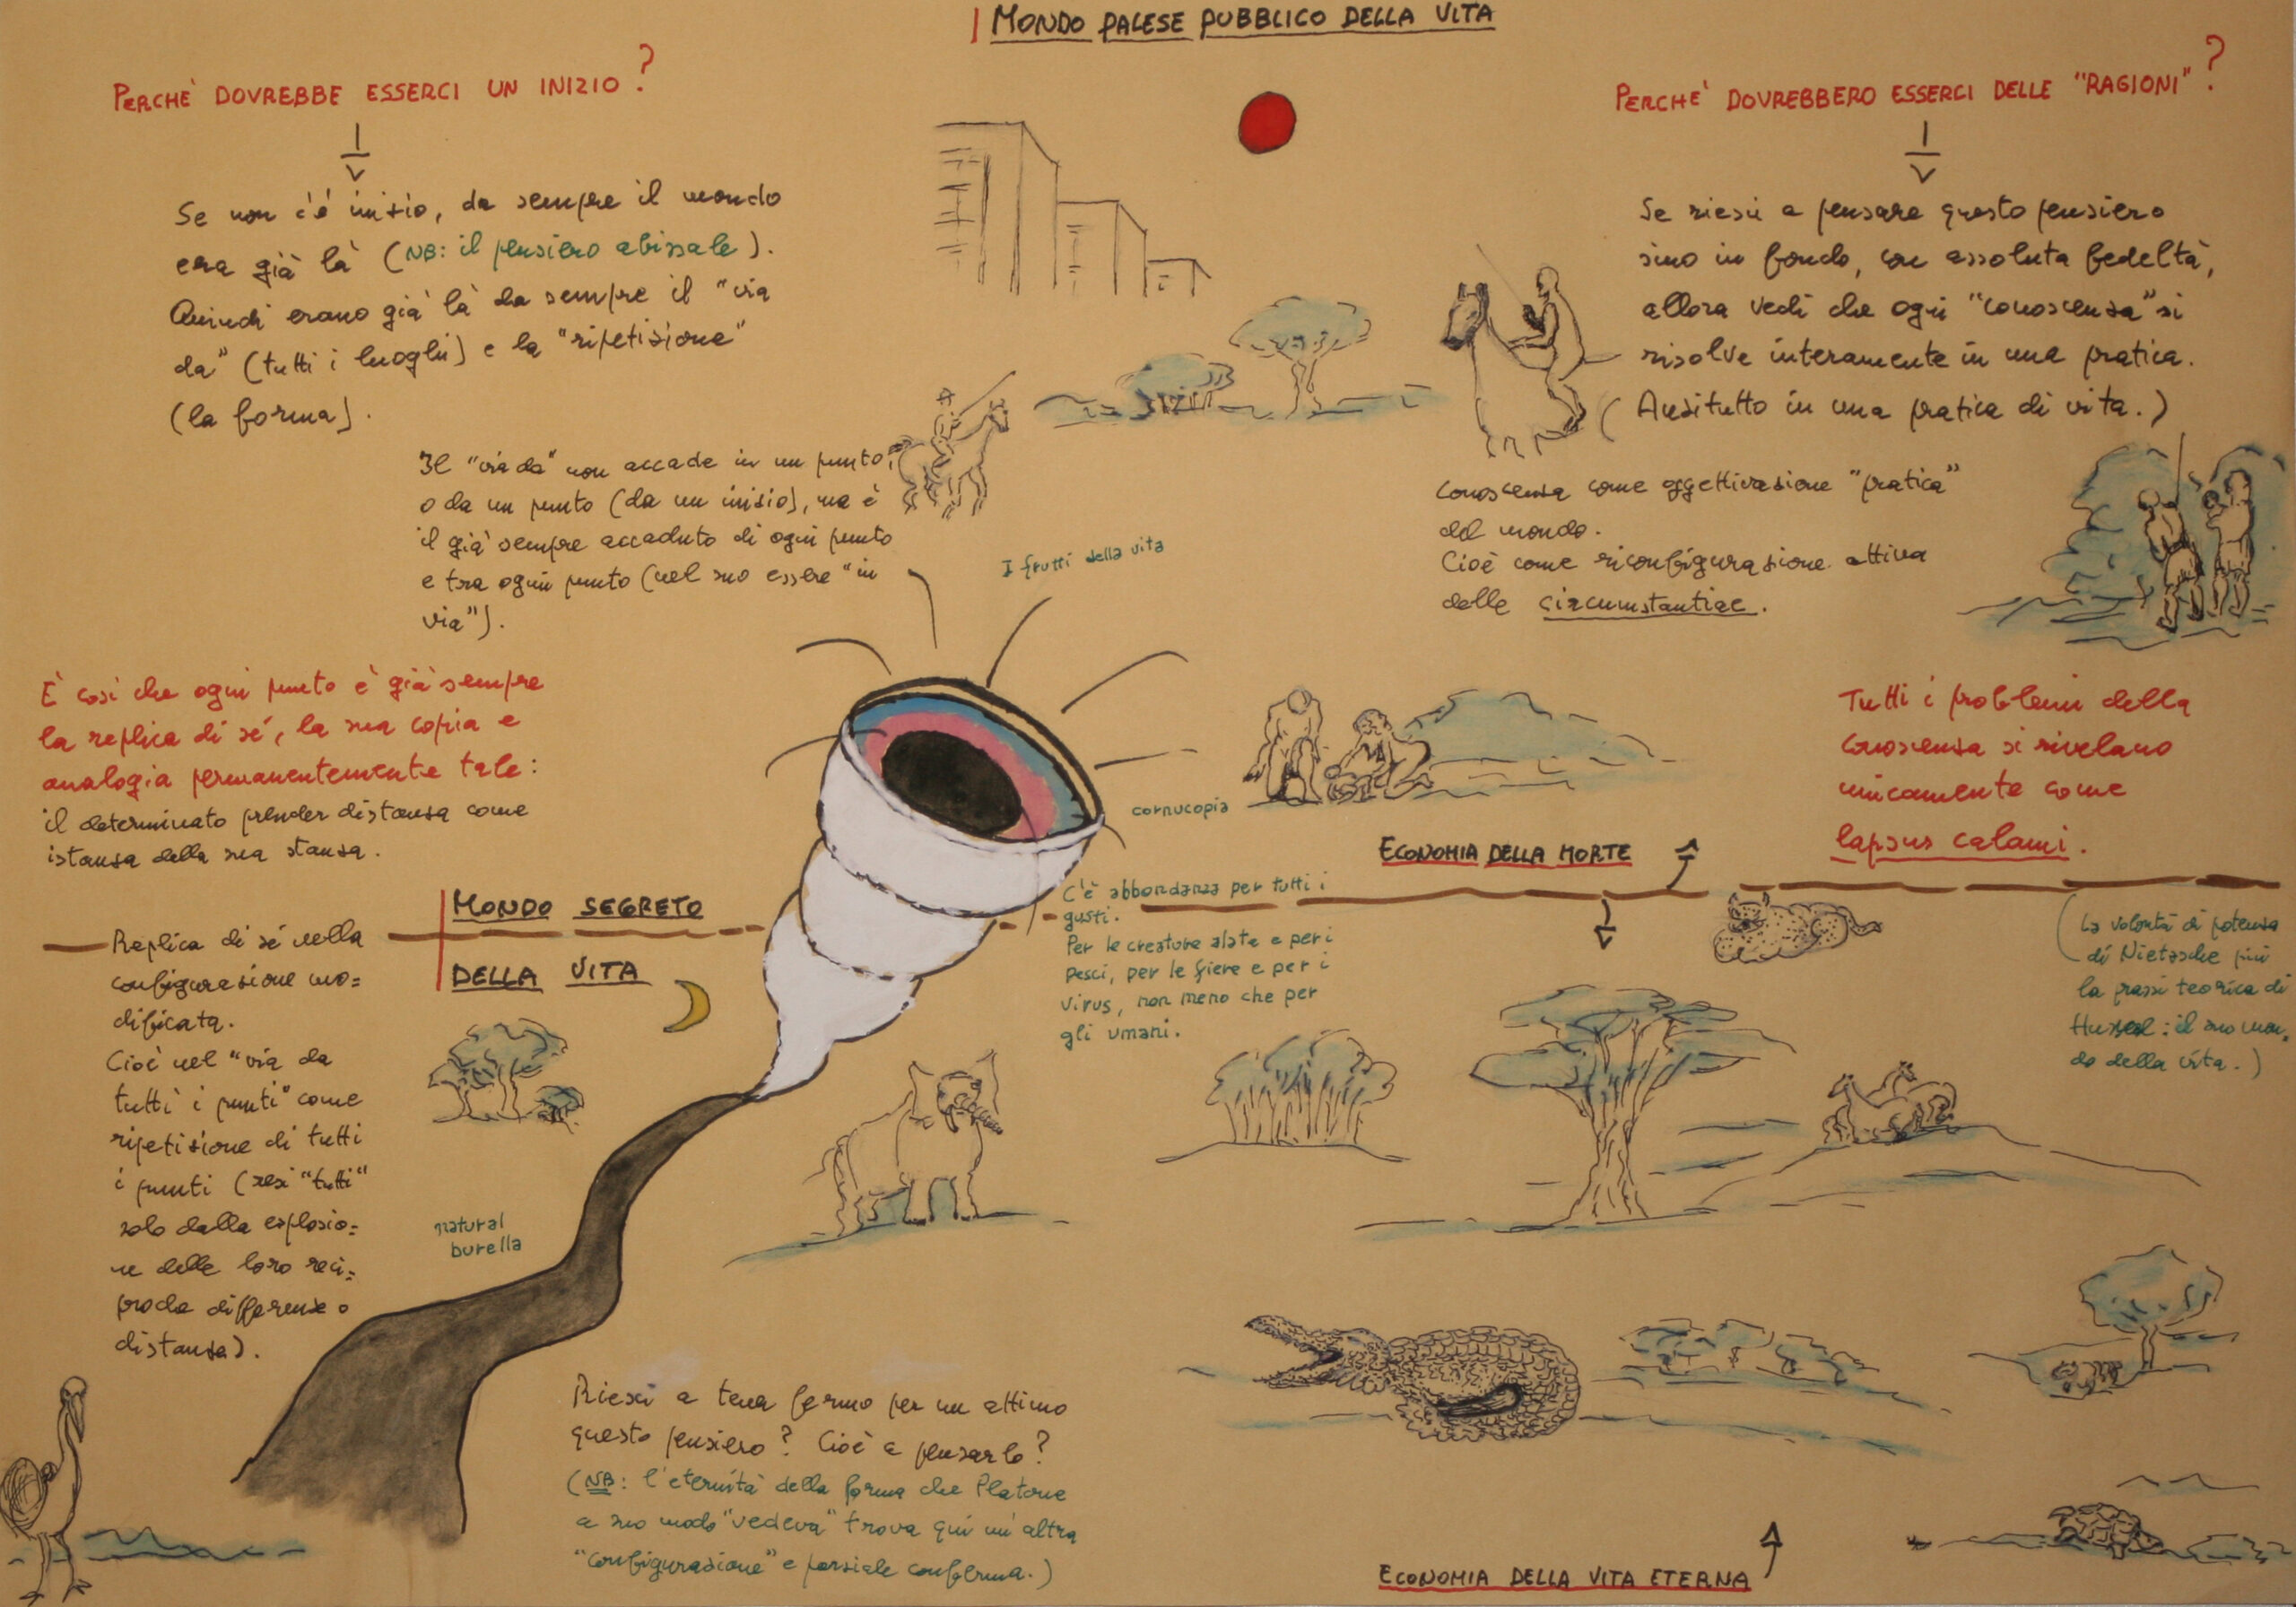 MONDO PALESE PUBBLICO DELLA VITA
PERCHÈ DOVREBBE ESSERCI UN INIZIO?
Se non c'è inizio, da sempre il mondo
era già là (NB: il pensiero abissale).
Quindi erano già là da sempre il "via
da" (tutti i luoghi) e la "ripetizione"
(la forma).
Il "via da" non accade in un punto,
o da un punto (da un inizio), ma è
il già sempre accaduto di ogni punto
e tra ogni punto (nel suo essere "in
via").
È così che ogni punto è già sempre
la replica di sé, la sua copia e
analogia permanentemente tale:
il determinato prender distanza come
istanza della sua stanza.
PERCHÈ DOVREBBERO ESSERCI DELLE "RAGIONI"?
Se riesci a pensare questo pensiero
sino in fondo, con assoluta fedeltà,
allora vedi che ogni "conoscenza" si
risolve interamente in una pratica.
(Anzitutto in una pratica di vita.)
Conoscenza come oggettivazione "pratica"
del mondo.
Cioè come riconfigurazione attiva
delle circumstantiae.
Tutti i problemi della
conoscenza si rivelano
unicamente come
lapsus calami.
I frutti della vita
cornucopia
ECONOMIA DELLA MORTE
MONDO SEGRETO
DELLA VITA
Replica di sé nella
configurazione mo=
dificata.
Cioè nel "via da
tutti i punti" come
ripetizione di tutti
i punti (resi "tutti"
solo dalla esplosio=
ne delle loro reci=
proche differenze o
distanze).
C'è abbondanza per tutti i
gusti.
Per le creature alate e per i
pesci, per le fiere e per i
virus, non meno che per
gli umani.
(La volontà di potenza
di Nietzsche più
la prassi teorica di
Husserl: il suo mon=
do della vita.)
natural
burella
Riesci a tener fermo per un attimo
questo pensiero? Cioè a pensarlo?
(NB: l'eternità della forma che Platone
a suo modo "vedeva" trova qui un'altra
"configurazione" e parziale conferma.)
ECONOMIA DELLA VITA ETERNA